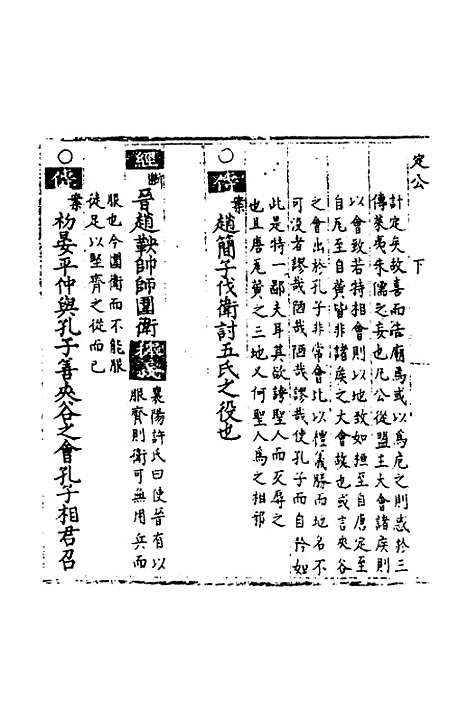 定公 下
計定矣故喜而告廟焉或以為危之則惑於三
傳萊夷朱儒之妄也凡公從盟主大會諸侯則
以會致若特相會則以地致如桓至自唐定至
自瓦至自黃皆非諸侯之大會故也或言夾谷
之會出於孔子非常會比以禮義勝而地名不
可没者謬哉陋哉謬哉使孔子而自矜如
此是特一鄙夫耳其欲謗聖人而反辱之
也且唐瓦黃之三地又何聖人焉之相邪
○傳案趙簡子伐衛討五氏之役也
經斷晉趙鞅帥師圍衛 襄陽許氏曰使晉有以
服齊則衛可無用兵而
服也今圍衛而不能服
徒足以堅齊之從而已
○傳案初晏平仲與孔子善夾谷之會孔子相君召